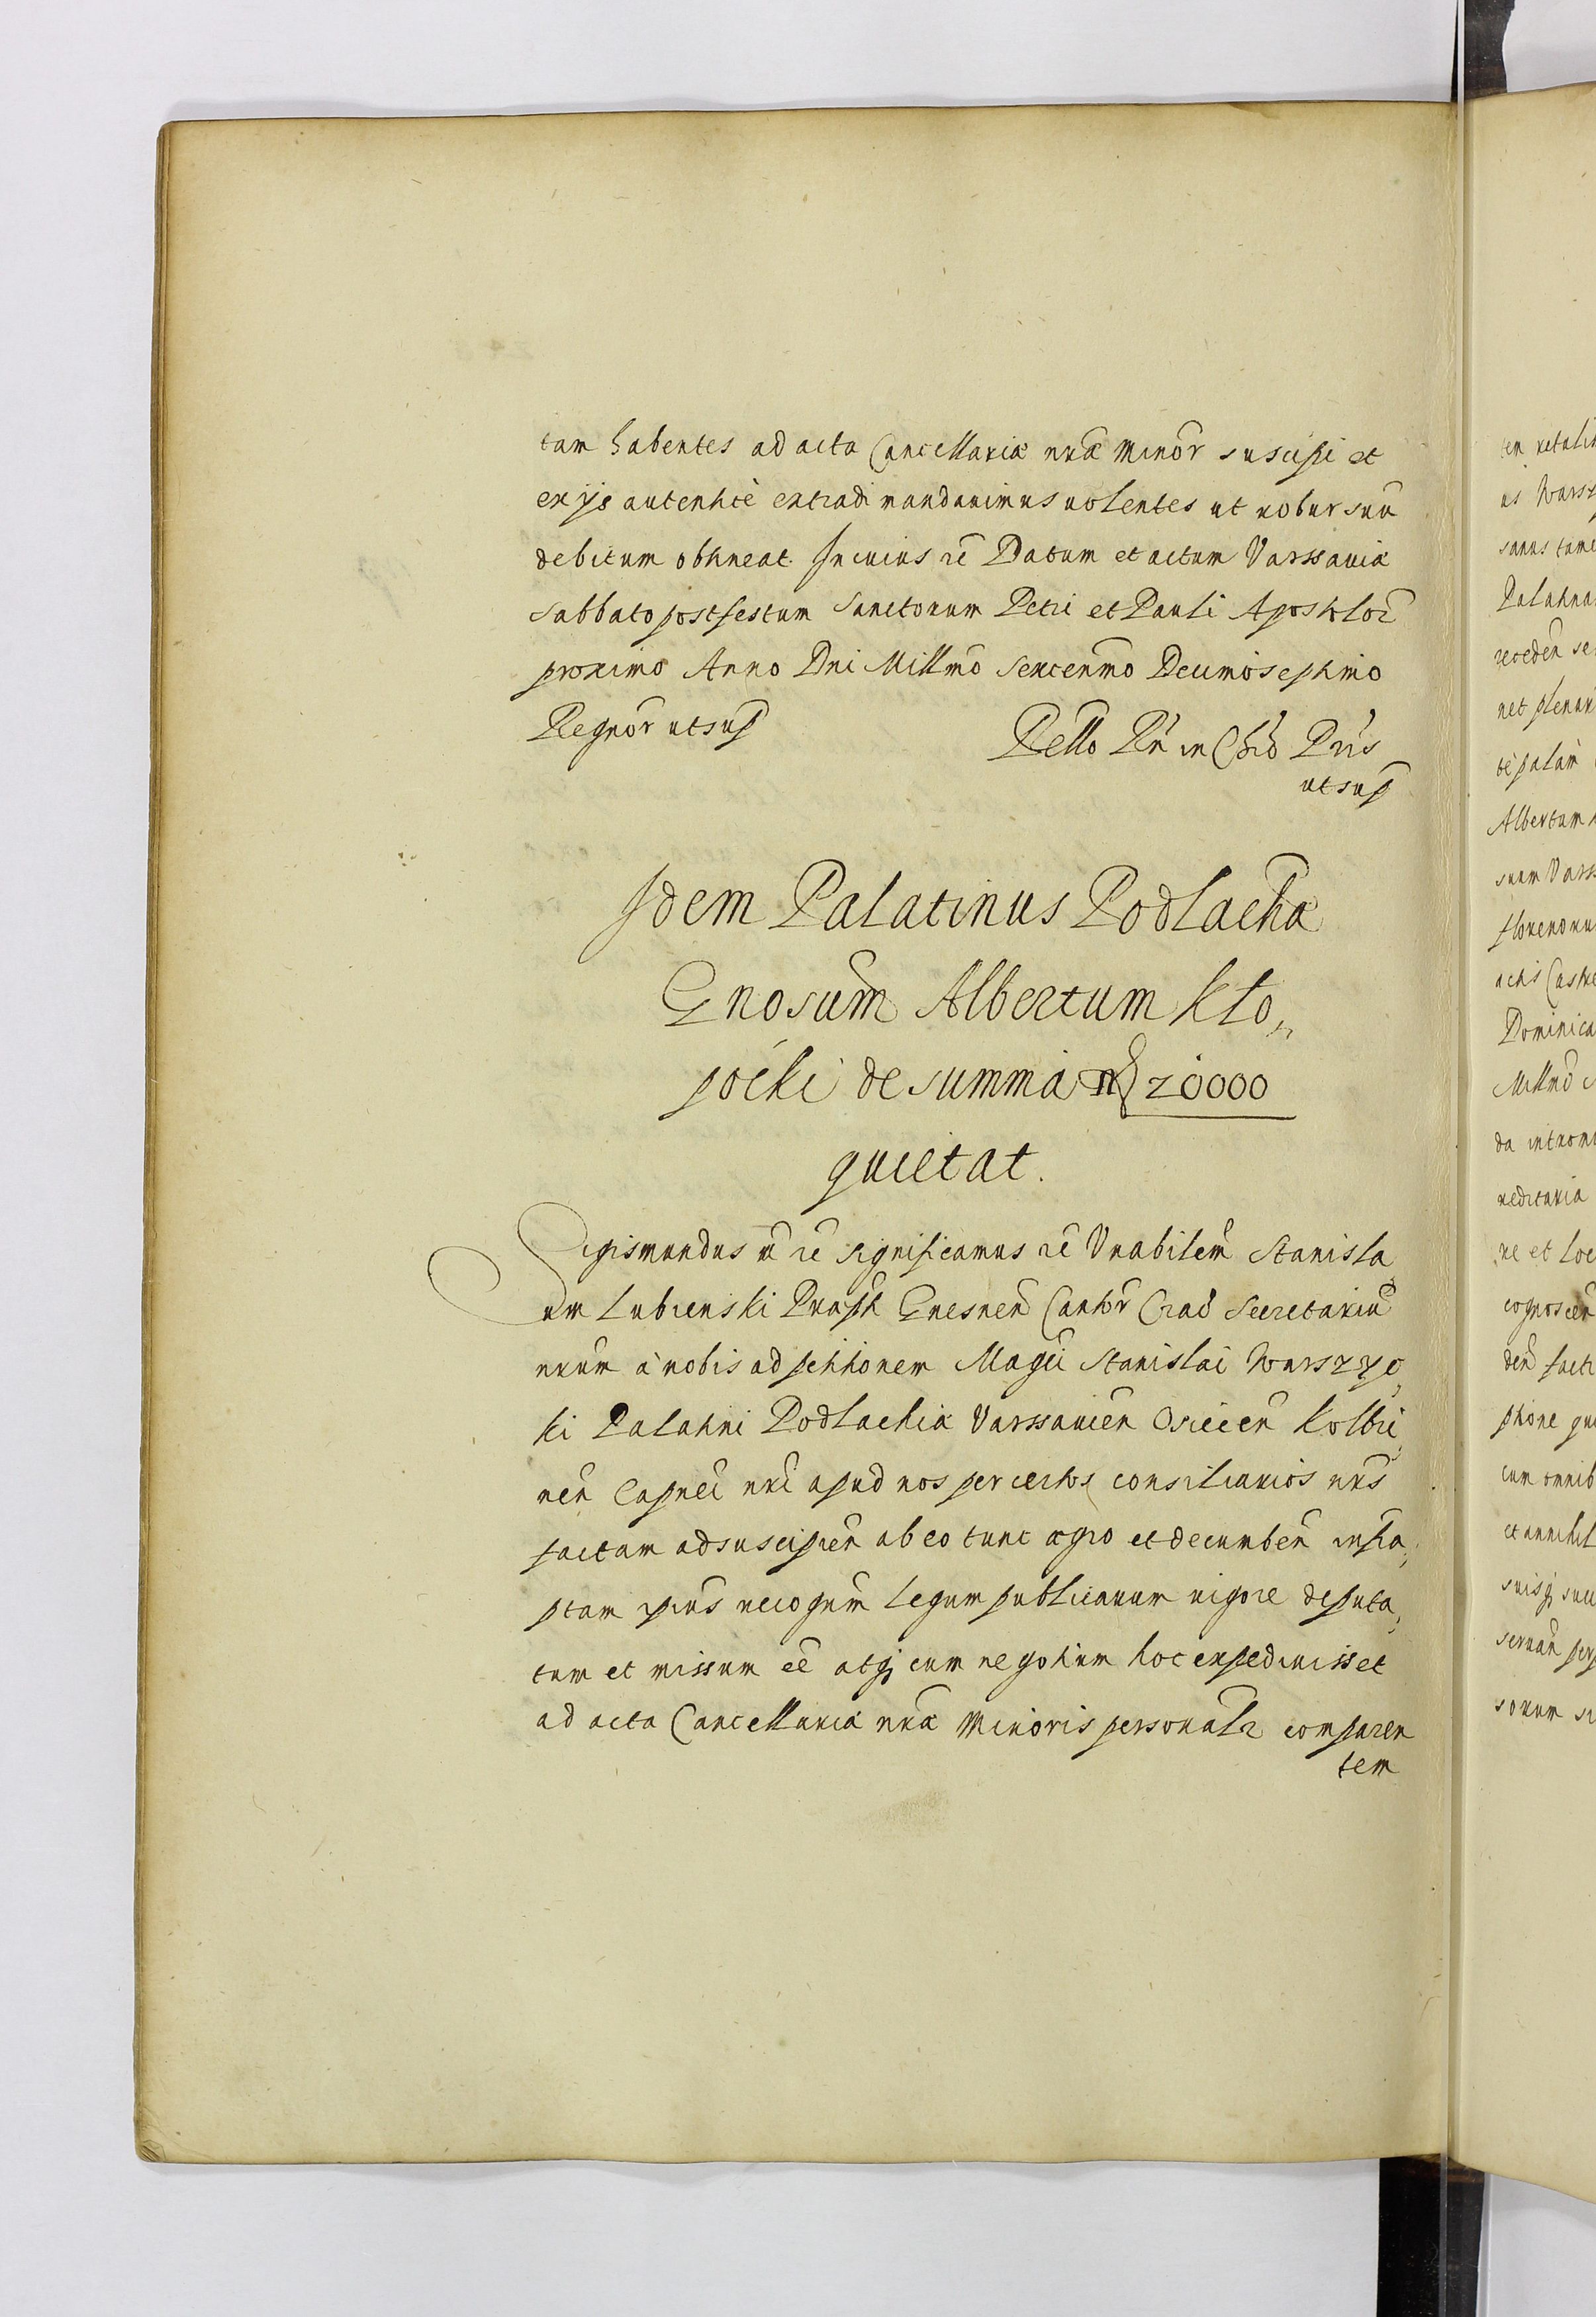 tam habentes ad acta Cancellariæ nræ Minor suscipi et
ex ijs autenticè extradi mandauimus uolentes ut robur suũ
debitum obtineat. In cuius rẽ Datum et actum Varssauiæ
sabbato post festum Sanctorum Petri et Pauli Apostolor̃
proximo Anno Dni Millmõ Sexcenmõ Decimoseptimo
Regnor̃ ut sup̃
Rello Rñ in Chrõ Pris
ut sup̃
Idem Palatinus Podlachiæ
Gnosum̃ Albertum Kło,
pocki de summa fl 20000
quietat.
Sigismundus ẽt rẽ significamus rẽ Vnabilem̃ Stanisla
um Lubienski Præpt Gnesnen̄ Cantor̃ Crac̃ Secretariũ
nrum à nobis ad petitionem Magci Stanislai Warszyc,
ki Palatini Podlachiæ Varssauien̄ Osiecen̄ Kolbie,
nen̄ Capnei nri apud nos per certos consiliarios nrõs
factam ad suscipien̄ ab eo tunc ægro et decumben̄ infra,
ptam ipius recogném legum publicarum uigore deputa,
tum et missum eẽ atq; cum negotium hoc expediuisset
ad acta Cancellariæ nræ Minoris personalr̃ comparen
tem
ten
us Warsz
Palatina
receden̄
net
Albertum
suam Vars
actis Castre
Dominica
Millmõ
da
ne et loc
cum omnib
sonum